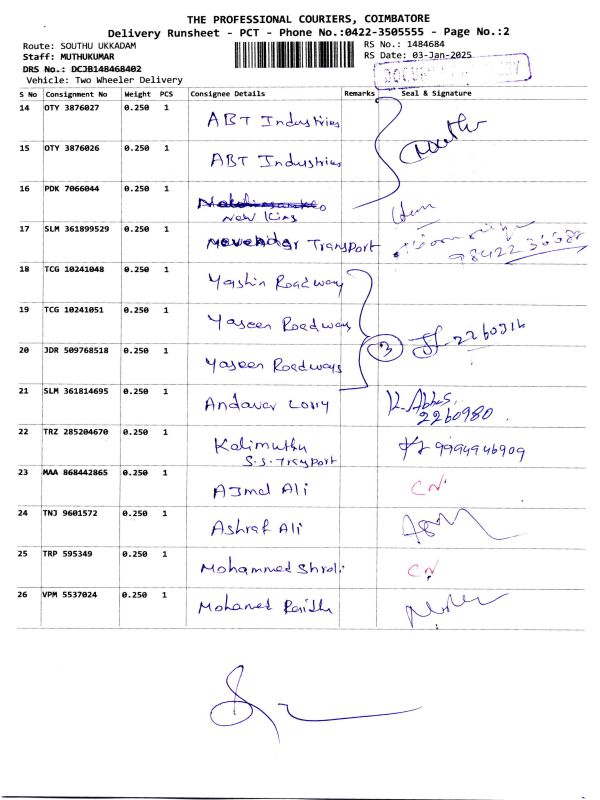 THE PROFESSIONAL COURIERS, COIMBATORE
Delivery Runsheet - PCT - Phone No.:0422-3505555 - Page No.:2
Route: SOUTHU UKKADAM
RS No.: 1484684
Staff: MUTHUKUMAR
RS Date: 03-Jan-2025
DRS No.: DCJB148468402
Vehicle: Two Wheeler Delivery
S No Consignment No Weight PCS Consignee Details Remarks Seal & Signature
14 OTY 3876027 0.250 1 ABT Industries
15 OTY 3876026 0.250 1 ABT Industries
16 PDK 7066044 0.250 1
New Kins
17 SLM 361899529 0.250 1 Mavendar Transport
98422 36682
18 TCG 10241048 0.250 1 Yashin Roadway
19 TCG 10241051 0.250 1 Yaseen Roadways
3 2260314
20 JDR 509768518 0.250 1 Yaseen Roadways
21 SLM 361814695 0.250 1 Andavar Lorry K. Abbas.
2260980
22 TRZ 285204670 0.250 1 Kalimuthu 9994946909
S.S. Transport
23 MAA 868442865 0.250 1 AJmal Ali CN
24 TNJ 9601572 0.250 1 Ashraf Ali
25 TRP 595349 0.250 1 Mohammed Shroli CN
26 VPM 5537024 0.250 1 Mohamed